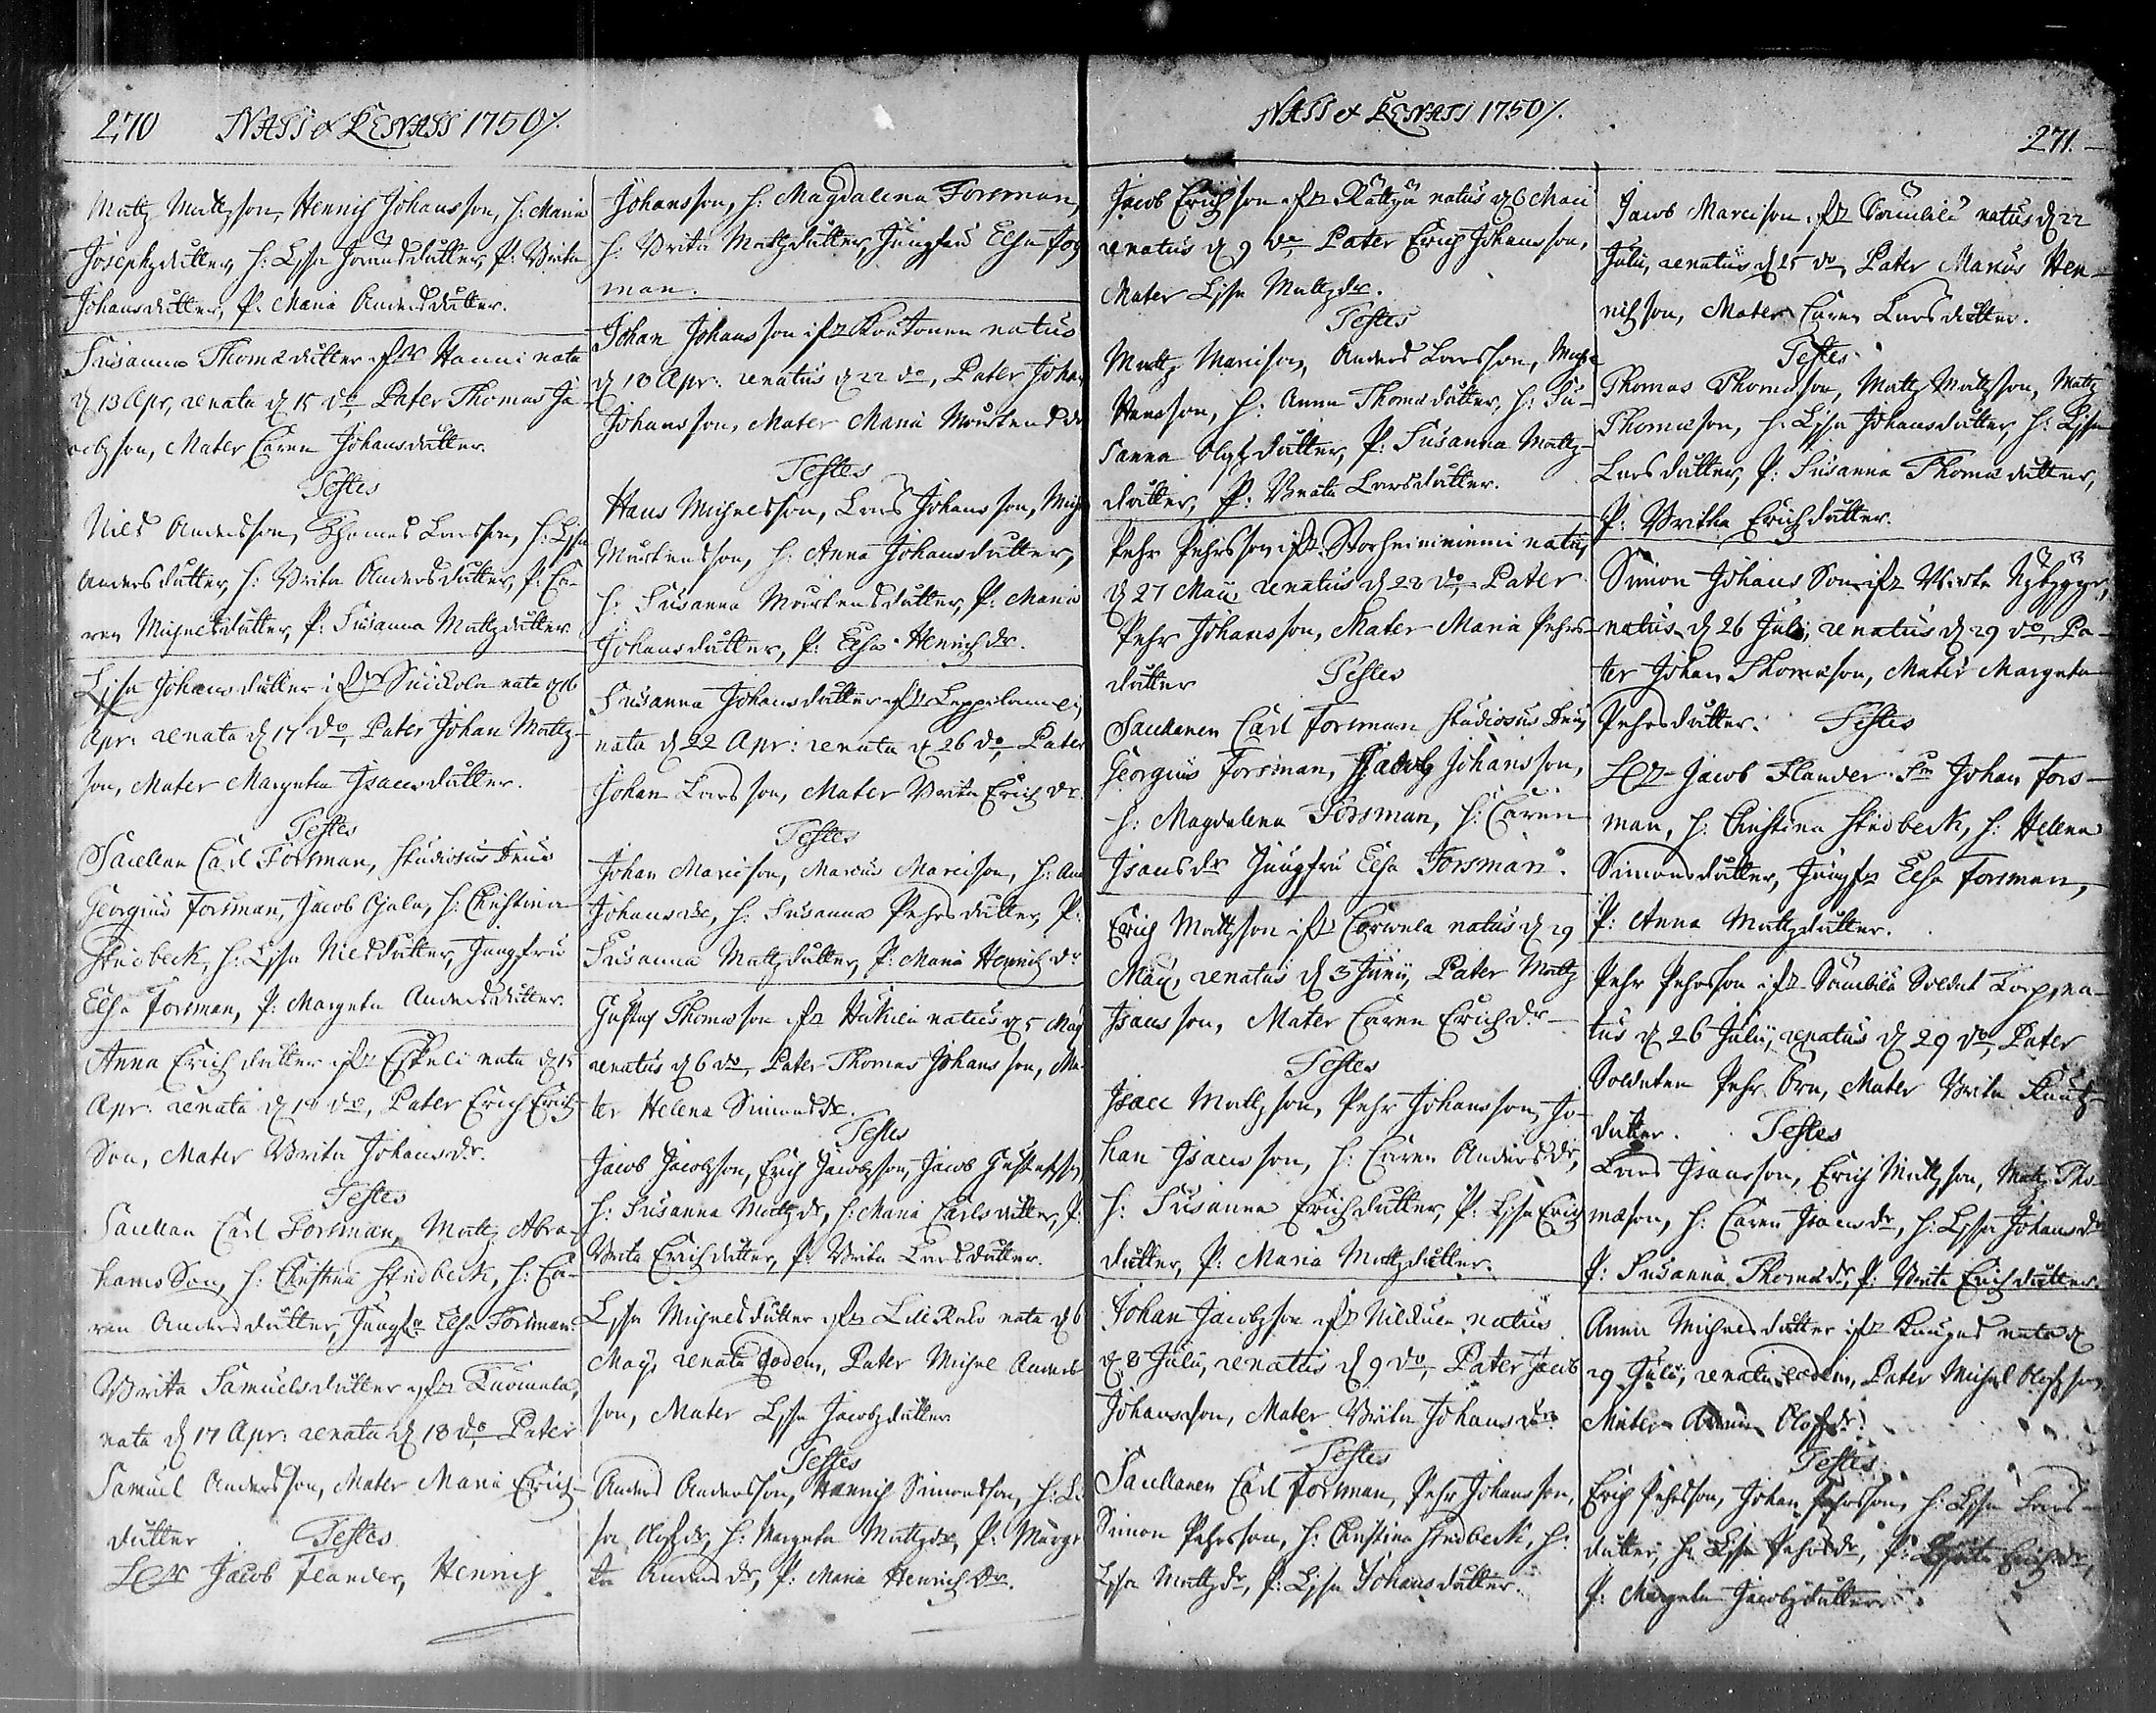 270 NASS & RENASS 1750/.
Mattz Mattzson, Henrich Johansson, H: Maria
Josephzdutter, H: Lisa Jonædutter, P: Brita
Johansdutter, P: Maria Andersdutter.
Susanna Thomædutter ifrån Hanni nata
d 13 Apr, renata d 15 do Pater Thomas Ja-
cobzson, Mater Caren Johansdutter.
Testes
Nils Andersson, Thomas Larsson, H: Lisa
Andersdutter, H: Brita Andersdutter, P: Ca-
ren Michelsdutter, P: Susanna Mattzdutter.
Lisa Johansdutter ifrån nata d 16
Apr: renata d 17 do, Pater Johan Mattz-
son, Mater Margeta Isacsdutter.
Testes
Sacellan Carl Forsman, Studiosus
Georgius Forsman, Jacob, H: Christina
Stubeck, H: Lisa Nilsdutter, Jungfru
Elsa Forsman, P: Margeta Andersdutter.
Anna Erichdutter ifr Eskeli nata d 15
Apr: renata d 18 do, Pater Erich Erich-
son, Mater Brita Johansdr.
Testes
Sacellan Carl Forsman, Mattz Abra-
hams Son, H: Christina Stubeck, H: Ca-
ren Andersdutter, Jungfr Elsa Forsman.
Brita Samuelsdutter ifr Tuomela,
nata d 17 Apr: renata d 18 do, Pater
Samuel Andersson, Mater Maria Erich-
dutter Testes
Jacob Flander, Henrich
Johansson, H: Magdalena Forsman,
H: Brita Mattzdutter, Jungfru Elsa Fors
man.
Johan Johansson ifr natus
d 18 Apr: renatus d 22 do, Pater Johan
Johansson, Mater Maria Mårtensdr
Testes
Hans Michelsson, Lars Johansson, Mich
Mårtensson, H: Anna Johansdutter,
H: Susanna Mårtensdutter, P: Maria
Johansdutter, P: Elsa Henrichdr.
Susanna Johansdutter ifr Leppelammi,
nata d 22 Apr: renata d 26 do, Pater
Johan Larsson, Mater Brita Erichdr.
Testes
Johan Marcison, Marcus Marcison, H: Anna
Johansdr, H: Susanna Pehrsdutter, P:
Susanna Mattzdutter, P: Maria Henrichdr
Gustaf Thomæson ifr natus d 5 Maij
renatus d 6 do, Pater Thomas Johansson, Ma-
ter Helena Simonsdr.
Testes
Jacob Jacobzson, Erich Jacobzson, Jacob Gustafsson
H: Susanna Mattzdr, H: Maria Carlsdutter, P:
Brita Erichdutter, P: Brita Larsdutter.
Lisa Michelsdutter ifr nata d 6
Maij, renata Eodem, Pater Michel Anders-
son, Mater Lisa Jacobzdutter
Testes
Anders Andersson, Henrich Simonsson, H: Li
sa Olofsdr, H: Margeta Mattzdr, P: Marge
ta Andersdr, P: Maria Henrichdr.
NASS & RENASS 1750/.
271.
Jacob Erichson ifr natus d 6 Maii
renatus d 9 do Pater Erich Johansson,
Mater Lisa Mattzdr.
Testes
Mattz Marcison, Anders Larsson, Mich
Hansson, H: Anna Thomædutter, H: Su-
sanna Olofsdutter, P: Susanna Mattz-
dutter, P: Beata Larsdutter.
Pehr Pehrsson ifr Storheiniemi natus
d 27 Maij renatus d 28 do, Pater
Pehr Johansson, Mater Maria Pehrs-
dutter Testes
Sacellanen Carl Forsman Studiosus
Georgius Forsman, Jacob Johansson,
H: Magdalena Forsman, H: Caren
Isacsdr Jungfru Elsa Forsman.
Erich Mattzson ifr Carwela natus d 29
Maij, renatus d 3 Junij, Pater Mattz
Isacsson, Mater Caren Erichdr
Testes
Isac Mattzson, Pehr Johansson, Jo-
han Isacsson, H: Caren Andersdr,
H: Susanna Erichdutter, P: Lisa Erich
dutter, P: Maria Mattzdutter.
Johan Jacobzson ifr natus
d 8 Julij, renatus d 9 do, Pater Jacob
Johansson, Mater Brita Johansdr
Testes
Sacellanen Carl Forsman, Pehr Johansson,
Simon Pehrsson, H: Christina Stubeck, H:
Lisa Mattzdr, P: Lisa Johansdutter.
Jacob Marcison ifr natus d 22
Julij, renatus d 25 do, Pater Marcus Hen-
richson, Mater Caren Larsdutter.
Testes
Thomas Thomæson, Mattz Mattzson, Mattz
Thomæson, H: Lisa Johansdutter, H: Lisa
Larsdutter, P: Susanna Thomædutter,
P: Britha Erichdutter.
Simon Johans Son ifr
natus d 26 Julij, renatus d 29 do, Pa-
ter Johan Thomæson, Mater Margeta
Pehrsdutter. Testes
Jacob Flander Johan Fors-
man, H: Christina Stubeck, H: Helena
Simonsdutter, Jungfr Elsa Forsman,
P: Anna Mattzdutter.
Pehr Pehrsson ifr Soldat Torp, na-
tus d 26 Julij, renatus d 29 do, Pater
Soldaten Pehr Örn, Mater Brita
dutter. Testes
Lars Isacsson, Erich Mattzson, Mattz Tho-
mæson, H: Caren Isacsdr, H: Lisa Johansdr
P: Susanna Thomædr, P: Brita Erichdutter.
Anna Michelsdutter ifr nata d
29 Julij, renata eodem, Pater Michel Olofsson
Mater Anna Olofsdr.
Testes
Erich Pehrsson, Johan Pehrsson, H: Lisa Lars-
dutter, H: Lisa Pehrsdr, P: Erichdr,
P: Margeta Jacobzdutter